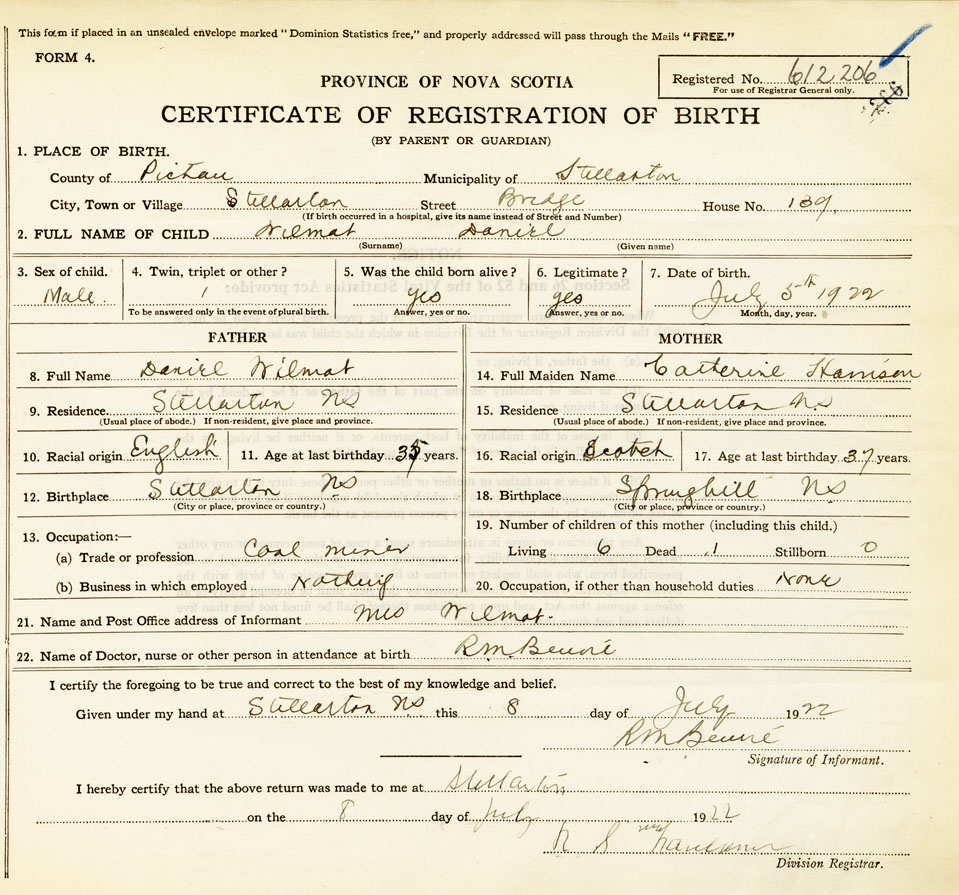 This form if placed in an unsealed envelope marked "Dominion Statistics free," and properly addressed will pass through the Mails "FREE."
FORM 4.
PROVINCE OF NOVA SCOTIA
Registered No. 612206
For use of Registrar General only.
CERTIFICATE OF REGISTRATION OF BIRTH
(BY PARENT OR GUARDIAN)
1. PLACE OF BIRTH.
County of Pictou Municipality of Stellarton
City, Town or Village Stellarton Street Bridge House No. 139
(If birth occurred in a hospital, give its name instead of Street and Number)
2. FULL NAME OF CHILD Wilmat Daniel
(Surname) (Given name)
3. Sex of child. 4. Twin, triplet or other? 5. Was the child born alive? 6. Legitimate? 7. Date of birth.
Male. 1 yes yes July 5th 1922
To be answered only in the event of plural birth. Answer, yes or no. Answer, yes or no. Month, day, year.
FATHER MOTHER
8. Full Name Daniel Wilmat 14. Full Maiden Name Catherine Harrison
9. Residence. Stellarton NS 15. Residence Stellarton NS
(Usual place of abode.) If non-resident, give place and province. (Usual place of abode.) If non-resident, give place and province.
10. Racial origin English 11. Age at last birthday 35 years. 16. Racial origin Scotch 17. Age at last birthday 37 years.
12. Birthplace Stellarton NS 18. Birthplace Springhill NS
(City or place, province or country.) (City or place, province or country.)
13. Occupation:— 19. Number of children of this mother (including this child.)
(a) Trade or profession Coal miner Living 6 Dead 1 Stillborn 0
(b) Business in which employed Nothing 20. Occupation, if other than household duties None
21. Name and Post Office address of Informant Mrs Wilmat.
22. Name of Doctor, nurse or other person in attendance at birth
I certify the foregoing to be true and correct to the best of my knowledge and belief.
Given under my hand at Stellarton NS this 8 day of July 1922
Signature of Informant.
I hereby certify that the above return was made to me at Stellarton,
on the 8 day of July 1922
Division Registrar.